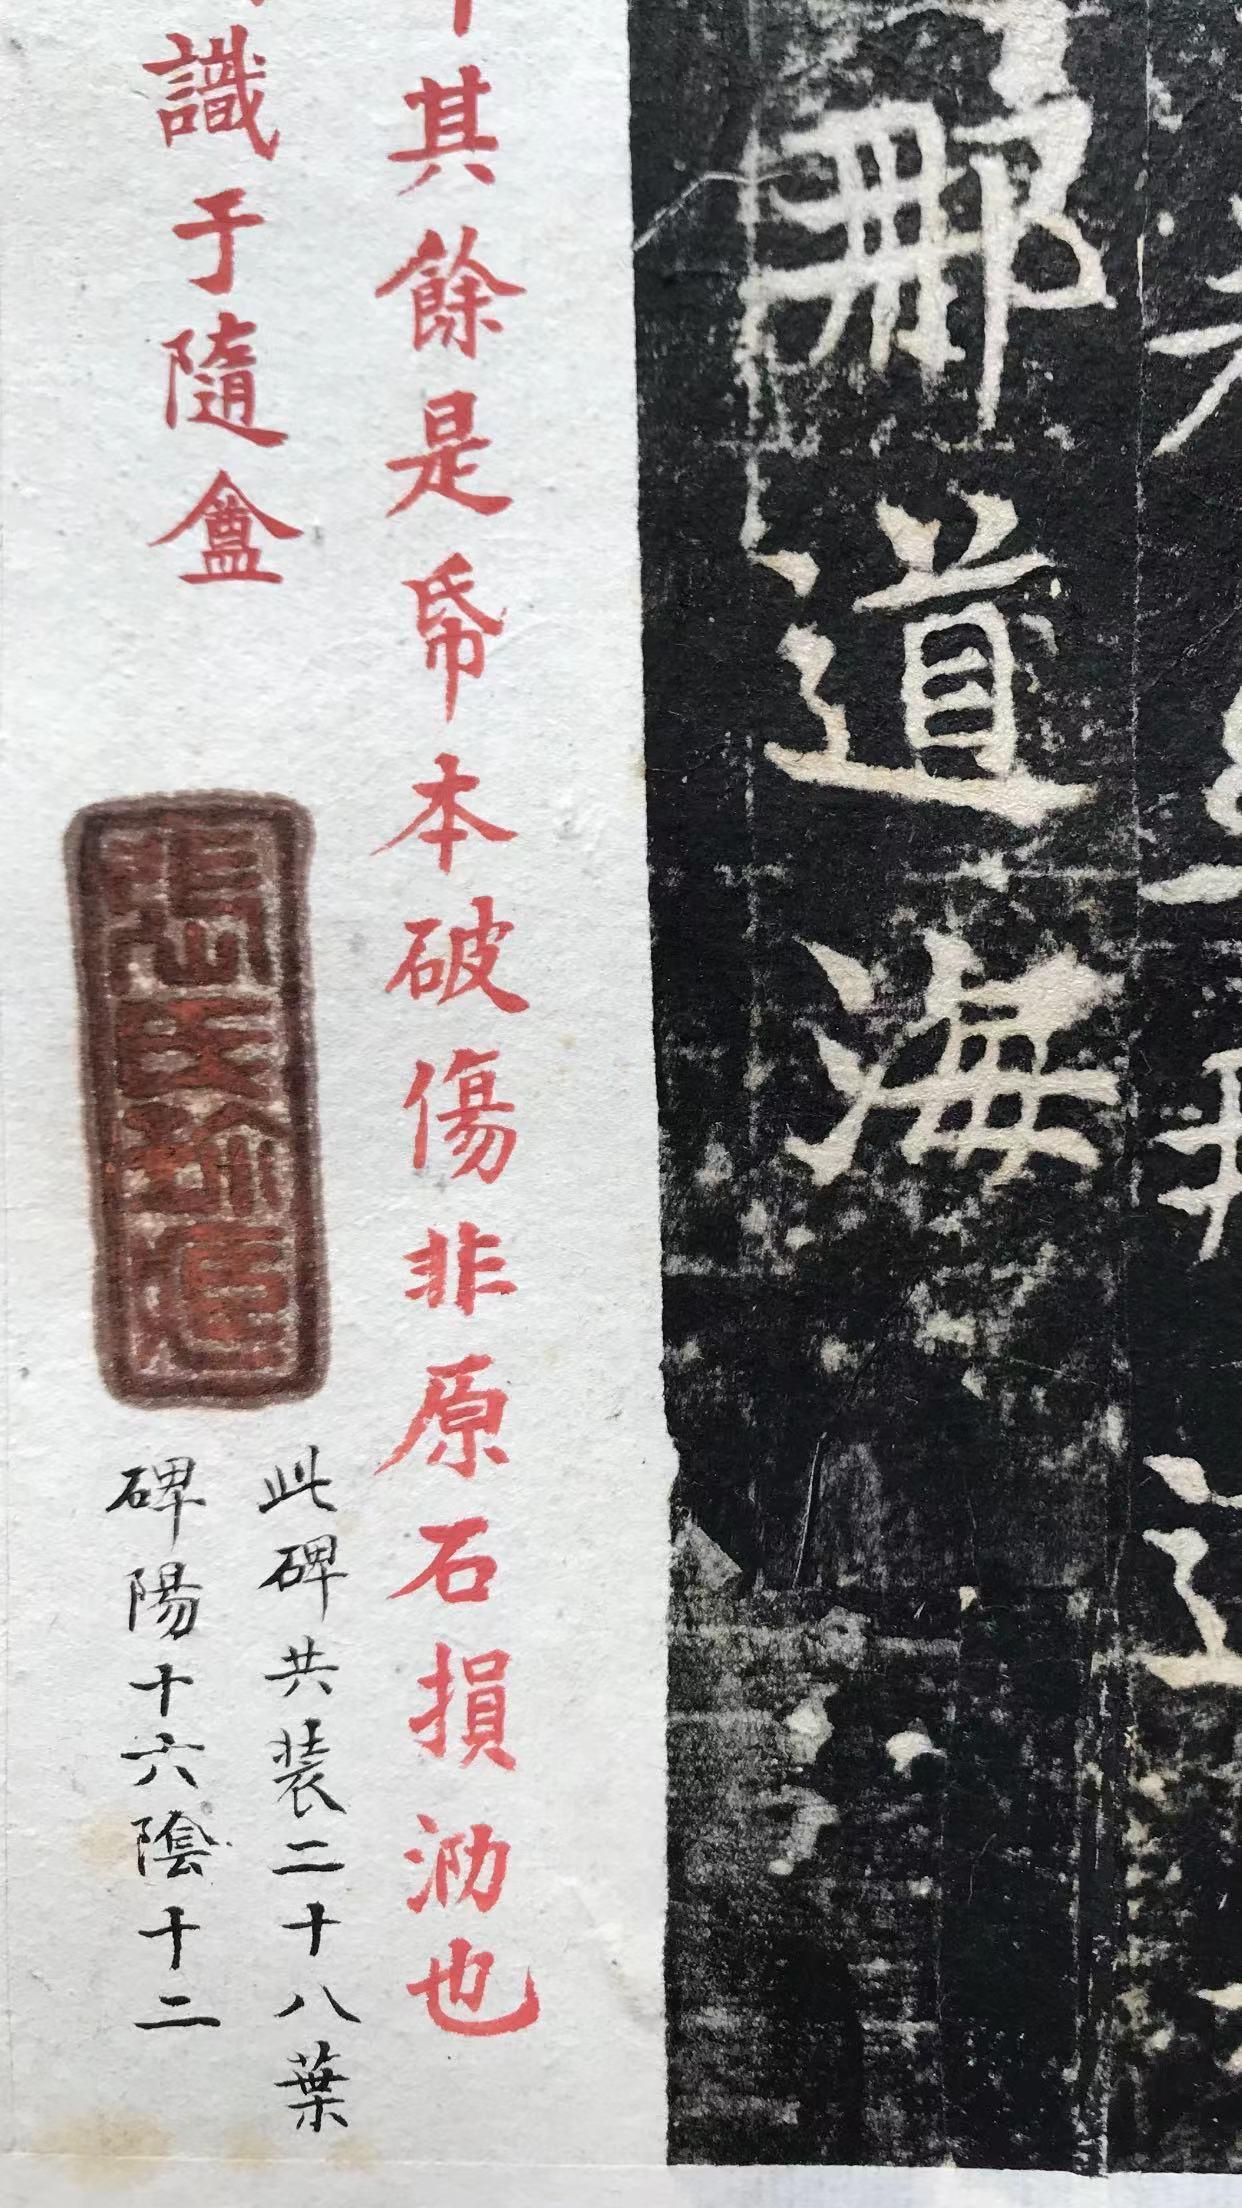 那道海
其餘是帋本破傷非原石損泐也
識于隨盦
此碑共裝二十八葉
碑陽十六陰十二